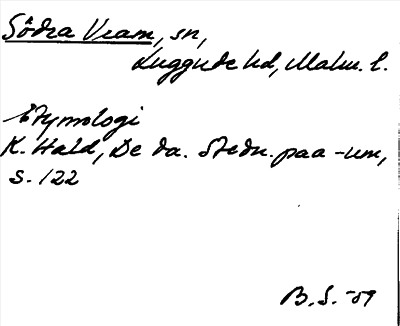 Södra Vram, sn,
Luggude hd, Malm. l.
Etymologi
K. Hald, De da. Stedn. paa -um,
s. 122
B. S. -59